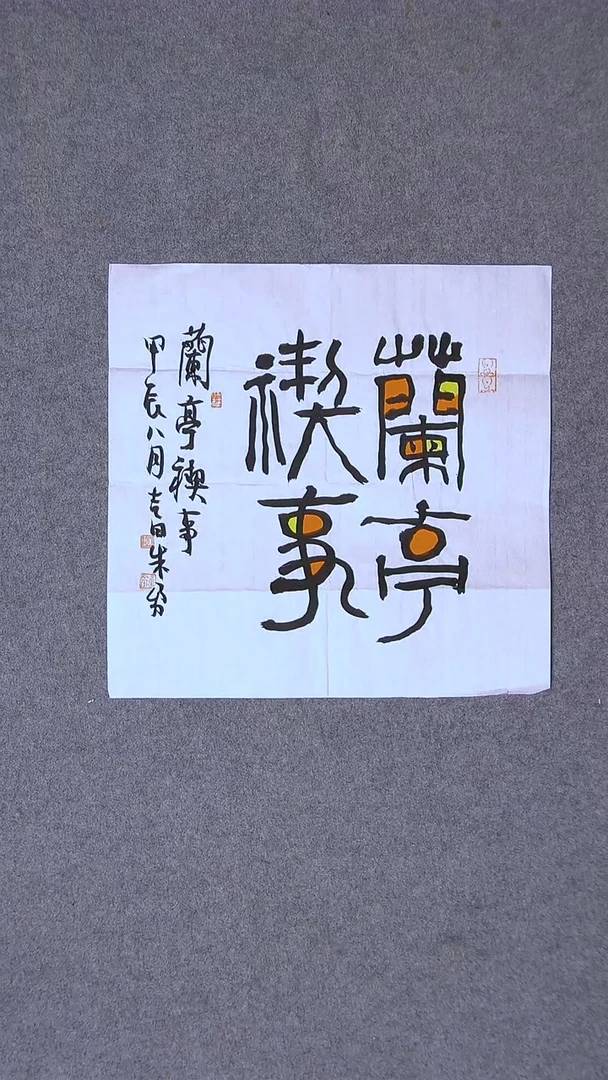 蘭亭
禊事
蘭亭禊事
甲辰八月吉日朱